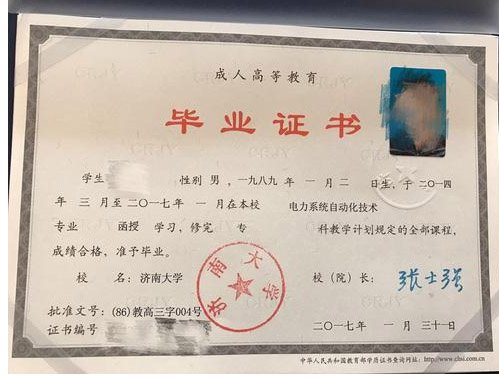 成人高等教育
毕业证书
学生 性别 男 ，一九八九 年 一 月 二 日生，于 二〇一四
年 三 月至 二〇一七 年 一 月在本校 电力系统自动化技术
专业 函授 学习，修完 专 科教学计划规定的全部课程，
成绩合格，准予毕业。
校 名：济南大学 校（院）长：张士强
济南大学
批准文号：(86)教高三字004号
证书编号
二〇一七年 一 月 三十一日
中华人民共和国教育部学历证书查询网址：http://www.chsi.com.cn